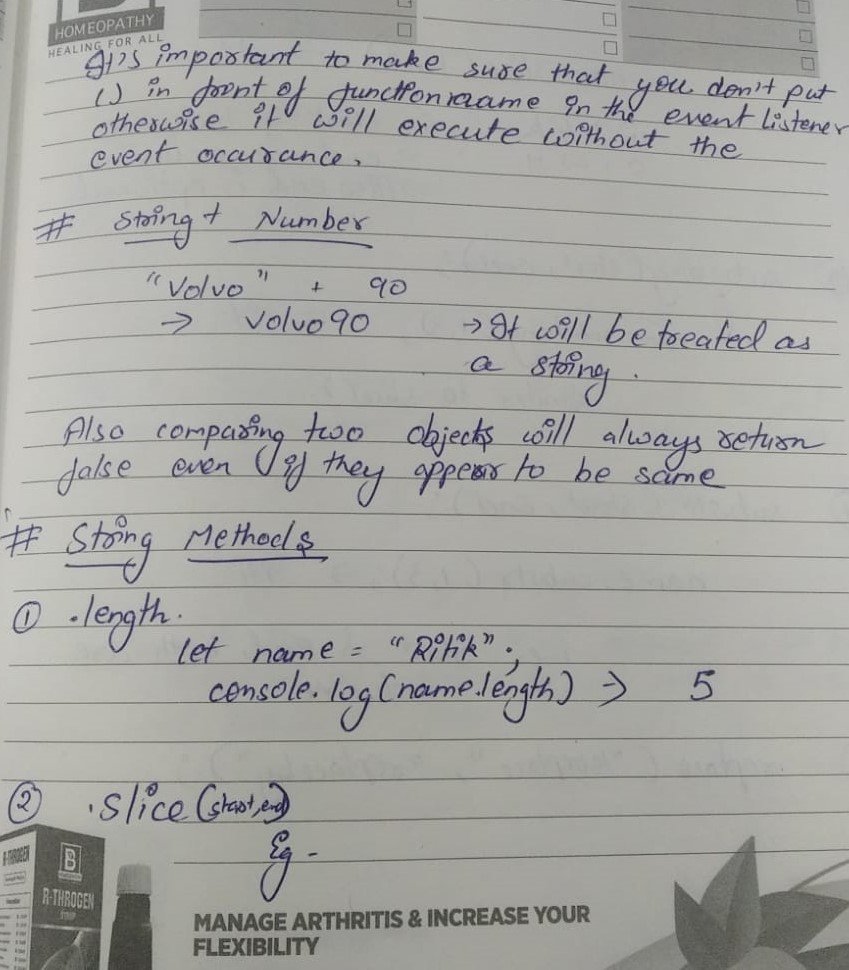 HOMEOPATHY
HEALING FOR ALL
It's important to make sure that you don't put
() in front of functionname in the event listener
otherwise it will execute without the
event occurance.
# String + Number
"Volvo" + 90
→ Volvo90 → It will be treated as
a string.
Also comparing two objects will always return
false even if they appear to be same
# String Methods
① .length.
let name = "Ritik";
console.log(name.length) → 5
② .slice(start,end)
Eg -
R-THROGEN
B
R-THROGEN
SYRUP
MANAGE ARTHRITIS & INCREASE YOUR
FLEXIBILITY